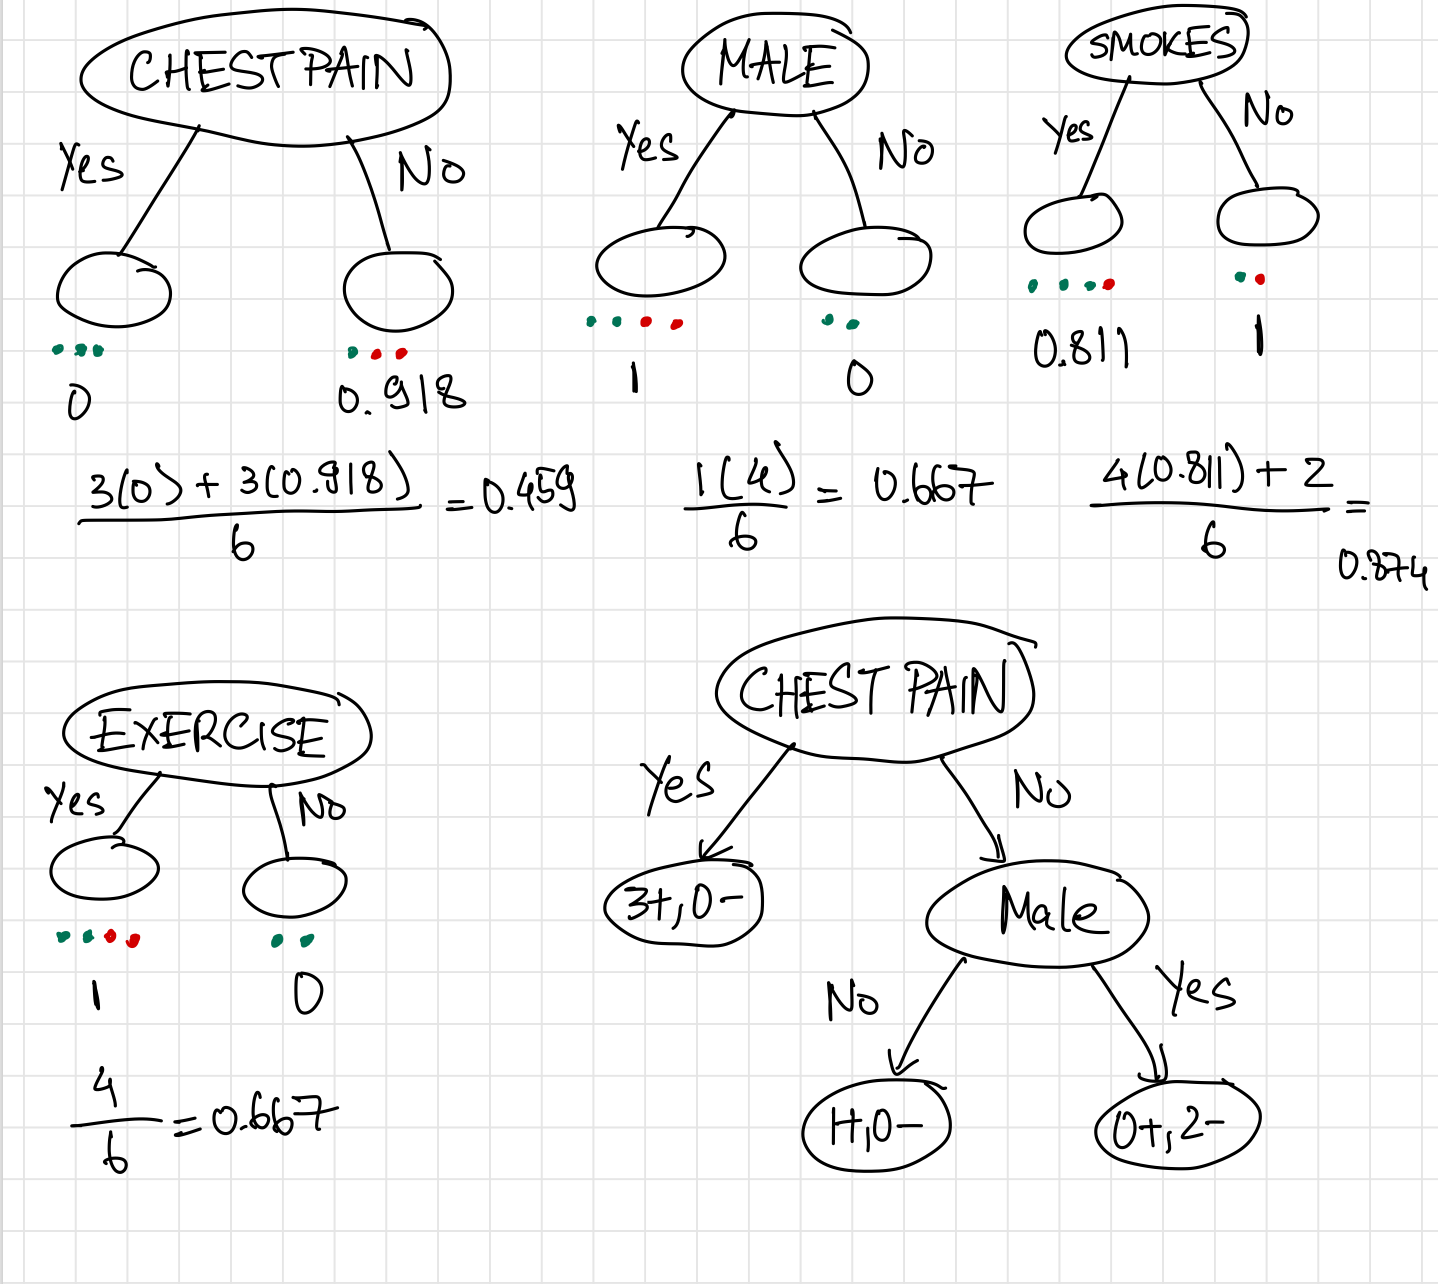 CHEST PAIN
Yes
No
0
0.918
3(0) + 3(0.918)
6
= 0.459
MALE
Yes
No
1
0
1(4)
6
= 0.667
SMOKES
Yes
No
0.811
1
4(0.811) + 2
6
=
0.874
EXERCISE
Yes
No
1
0
4
6
= 0.667
CHEST PAIN
Yes
No
3+,0-
Male
No
Yes
1+,0-
0+,2-